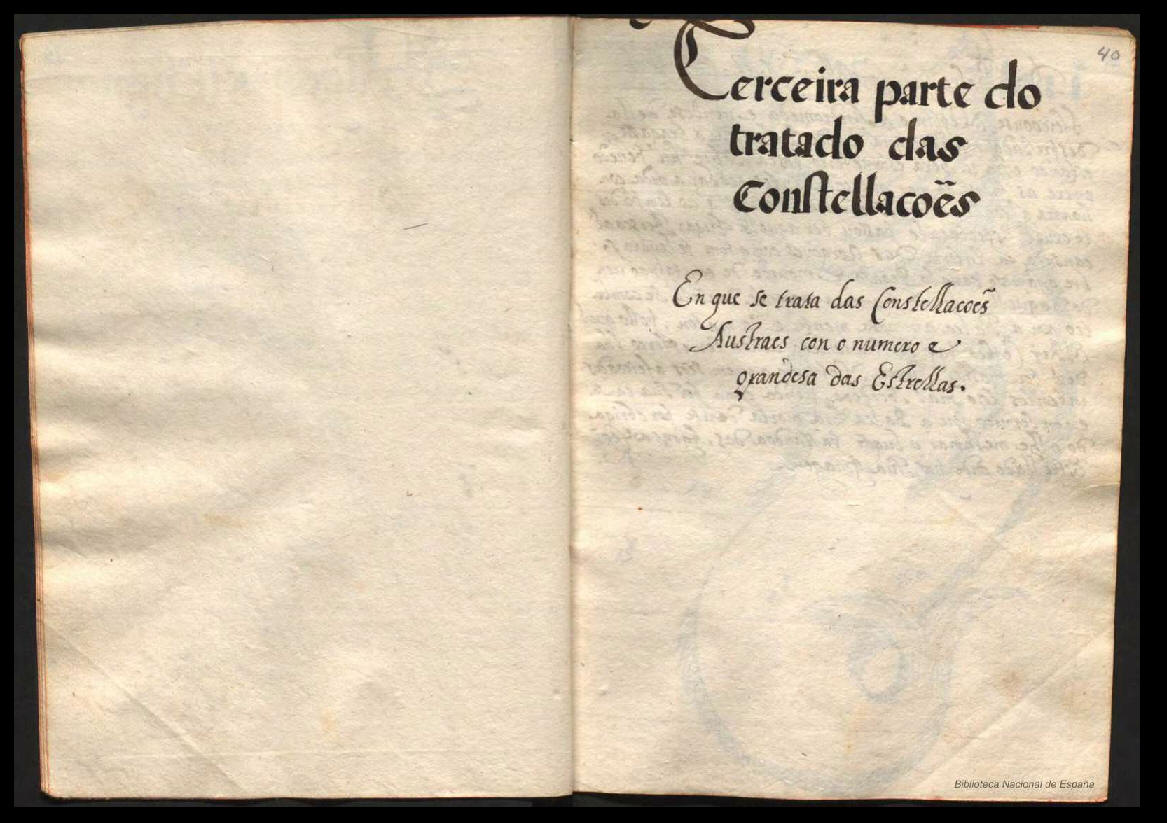 40
Terceira parte do
tratado das
Constellacoẽs
En que se trata das Constellacoẽs
Austraes con o numero e
grandesa das Estrellas.
Biblioteca Nacional de España